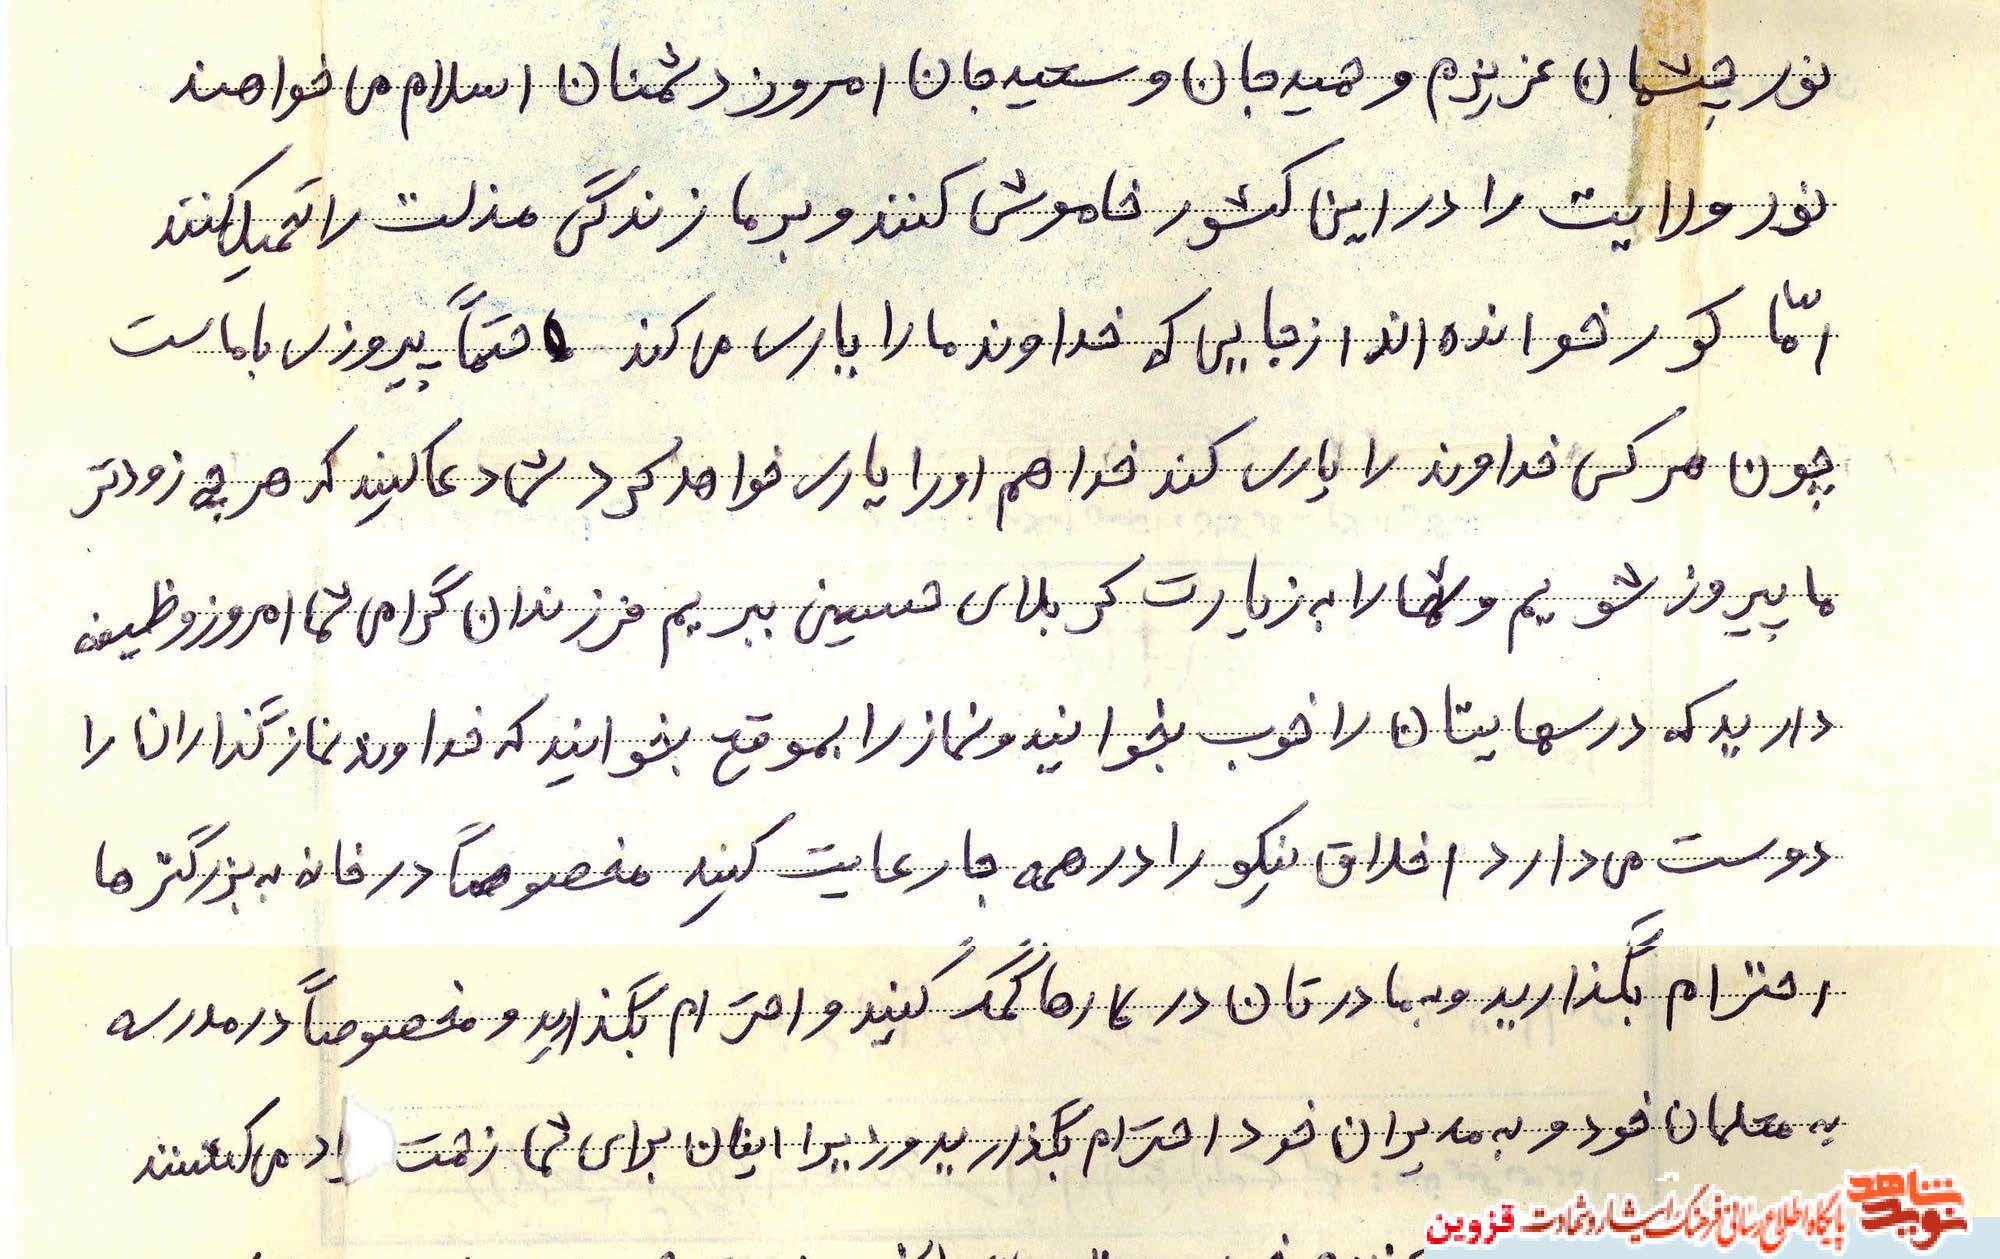 نور چشمان عزیزم و حمید جان و سعید جان امروز دشمنان اسلام می خواهند
نور ولایت را در این کشور خاموش کنند و بر ما زندگی مذلت را تحمیل کنند
امّا کور خوانده اند از جایی که خداوند ما را یاری می کند حتماً پیروزی با ماست
چون هر کس خداوند را یاری کند خدا هم او را یاری خواهد کرد شما دعا کنید که هر چه زودتر
ما پیروز شویم و شما را به زیارت کربلای حسینی ببریم فرزندان گرامی شما امروز وظیفه
دارید که درسهایتان را خوب بخوانید و نماز را بموقع بخوانید که خداوند نمازگذاران را
دوست می دارد اخلاق نیکو را در همه جا رعایت کنید مخصوصاً در خانه به بزرگترها
احترام بگذارید و به مادرتان در کارها کمک کنید و احترام بگذارید و مخصوصاً در مدرسه
به معلمان خود و به مدیران خود احترام بگذارید و زیرا اینان برای شما زحمت می کشند
شاهد نوید
پایگاه اطلاع رسانی فرهنگ ایثار و شهادت قزوین